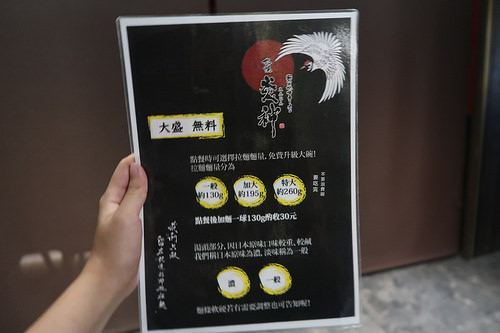 炎神
大盛 無料
點餐時可選擇拉麵麵量, 免費升級大碗!
拉麵麵量分為
一般
約130g
加大
約195g
特大
約260g
點餐後加麵一球130g酌收30元
湯頭部分, 因日本原味口味較重、較鹹
我們稱日本原味為濃, 淡味稱為一般
濃
一般
麵條軟硬若有需要調整也可告知喔!